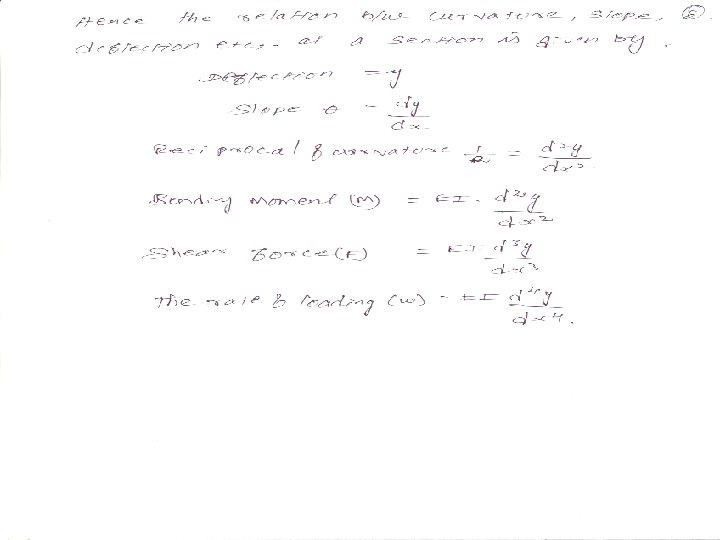 Hence the relation b/w curvature, slope, ⑥
deflection etc.. at a section is given by.
Deflection = y
Slope θ = dy/dx
Reciprocal of curvature 1/R = d²y/dx²
Bending Moment (M) = EI. d²y/dx²
Shear force (F) = EI d³y/dx³
The rate of loading (w) = EI d⁴y/dx⁴.